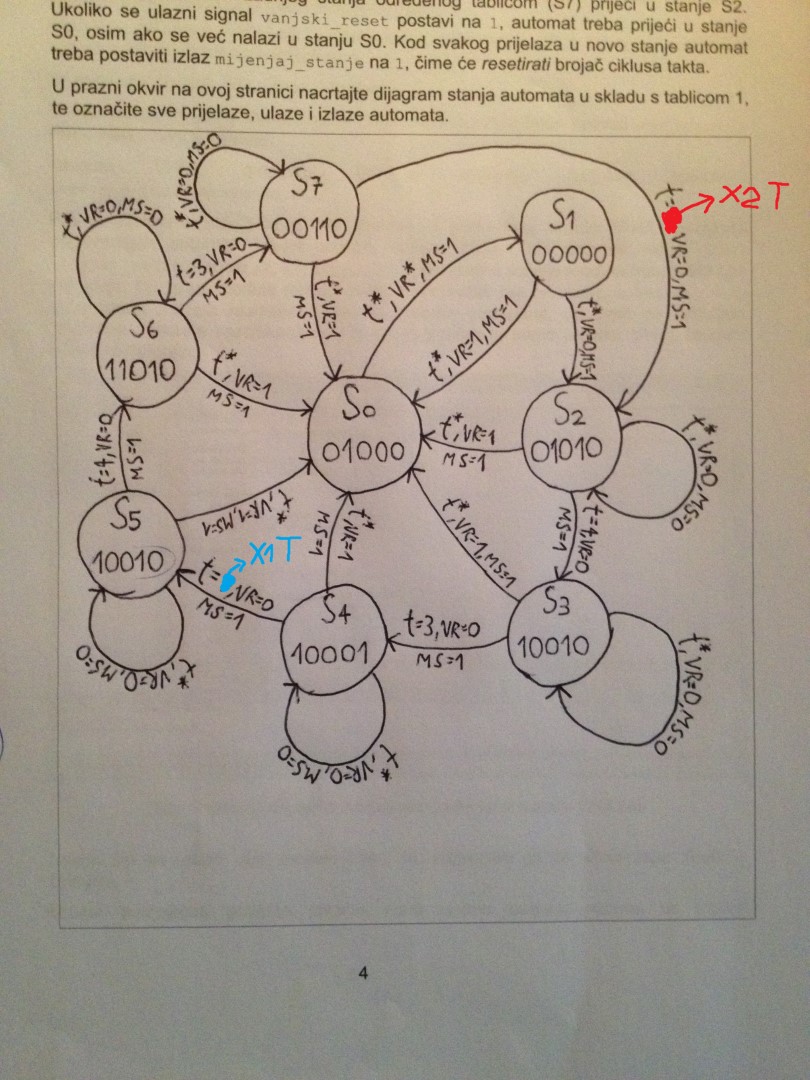 stanja određenog tablicom (S7) prijeći u stanje S2.
Ukoliko se ulazni signal vanjski_reset postavi na 1, automat treba prijeći u stanje
S0, osim ako se već nalazi u stanju S0. Kod svakog prijelaza u novo stanje automat
treba postaviti izlaz mijenjaj_stanje na 1, čime će resetirati brojač ciklusa takta.
U prazni okvir na ovoj stranici nacrtajte dijagram stanja automata u skladu s tablicom 1,
te označite sve prijelaze, ulaze i izlaze automata.
t*,VR=0,MS=0
S7
00110
t=
VR=0,MS=1
X2T
t*,VR=0,MS=0
t=3,VR=0
MS=1
S1
00000
t*,VR*,MS=1
t*,VR=1
MS=1
t*,VR=1,MS=1
t*,VR=0,MS=1
S6
11010
t*,VR=1
MS=1
S0
01000
t*,VR=1
MS=1
S2
01010
t*,VR=0,MS=0
t=4,VR=0
MS=1
S5
10010
t*,VR=1,MS=1
t*,VR=1
MS=1
t*,VR=1,MS=1
t=4,VR=0
MS=1
X1T
t=
,VR=0
MS=1
S4
10001
t=3,VR=0
MS=1
S3
10010
t*,VR=0,MS=0
t*,VR=0,MS=0
t*,VR=0,MS=0
4